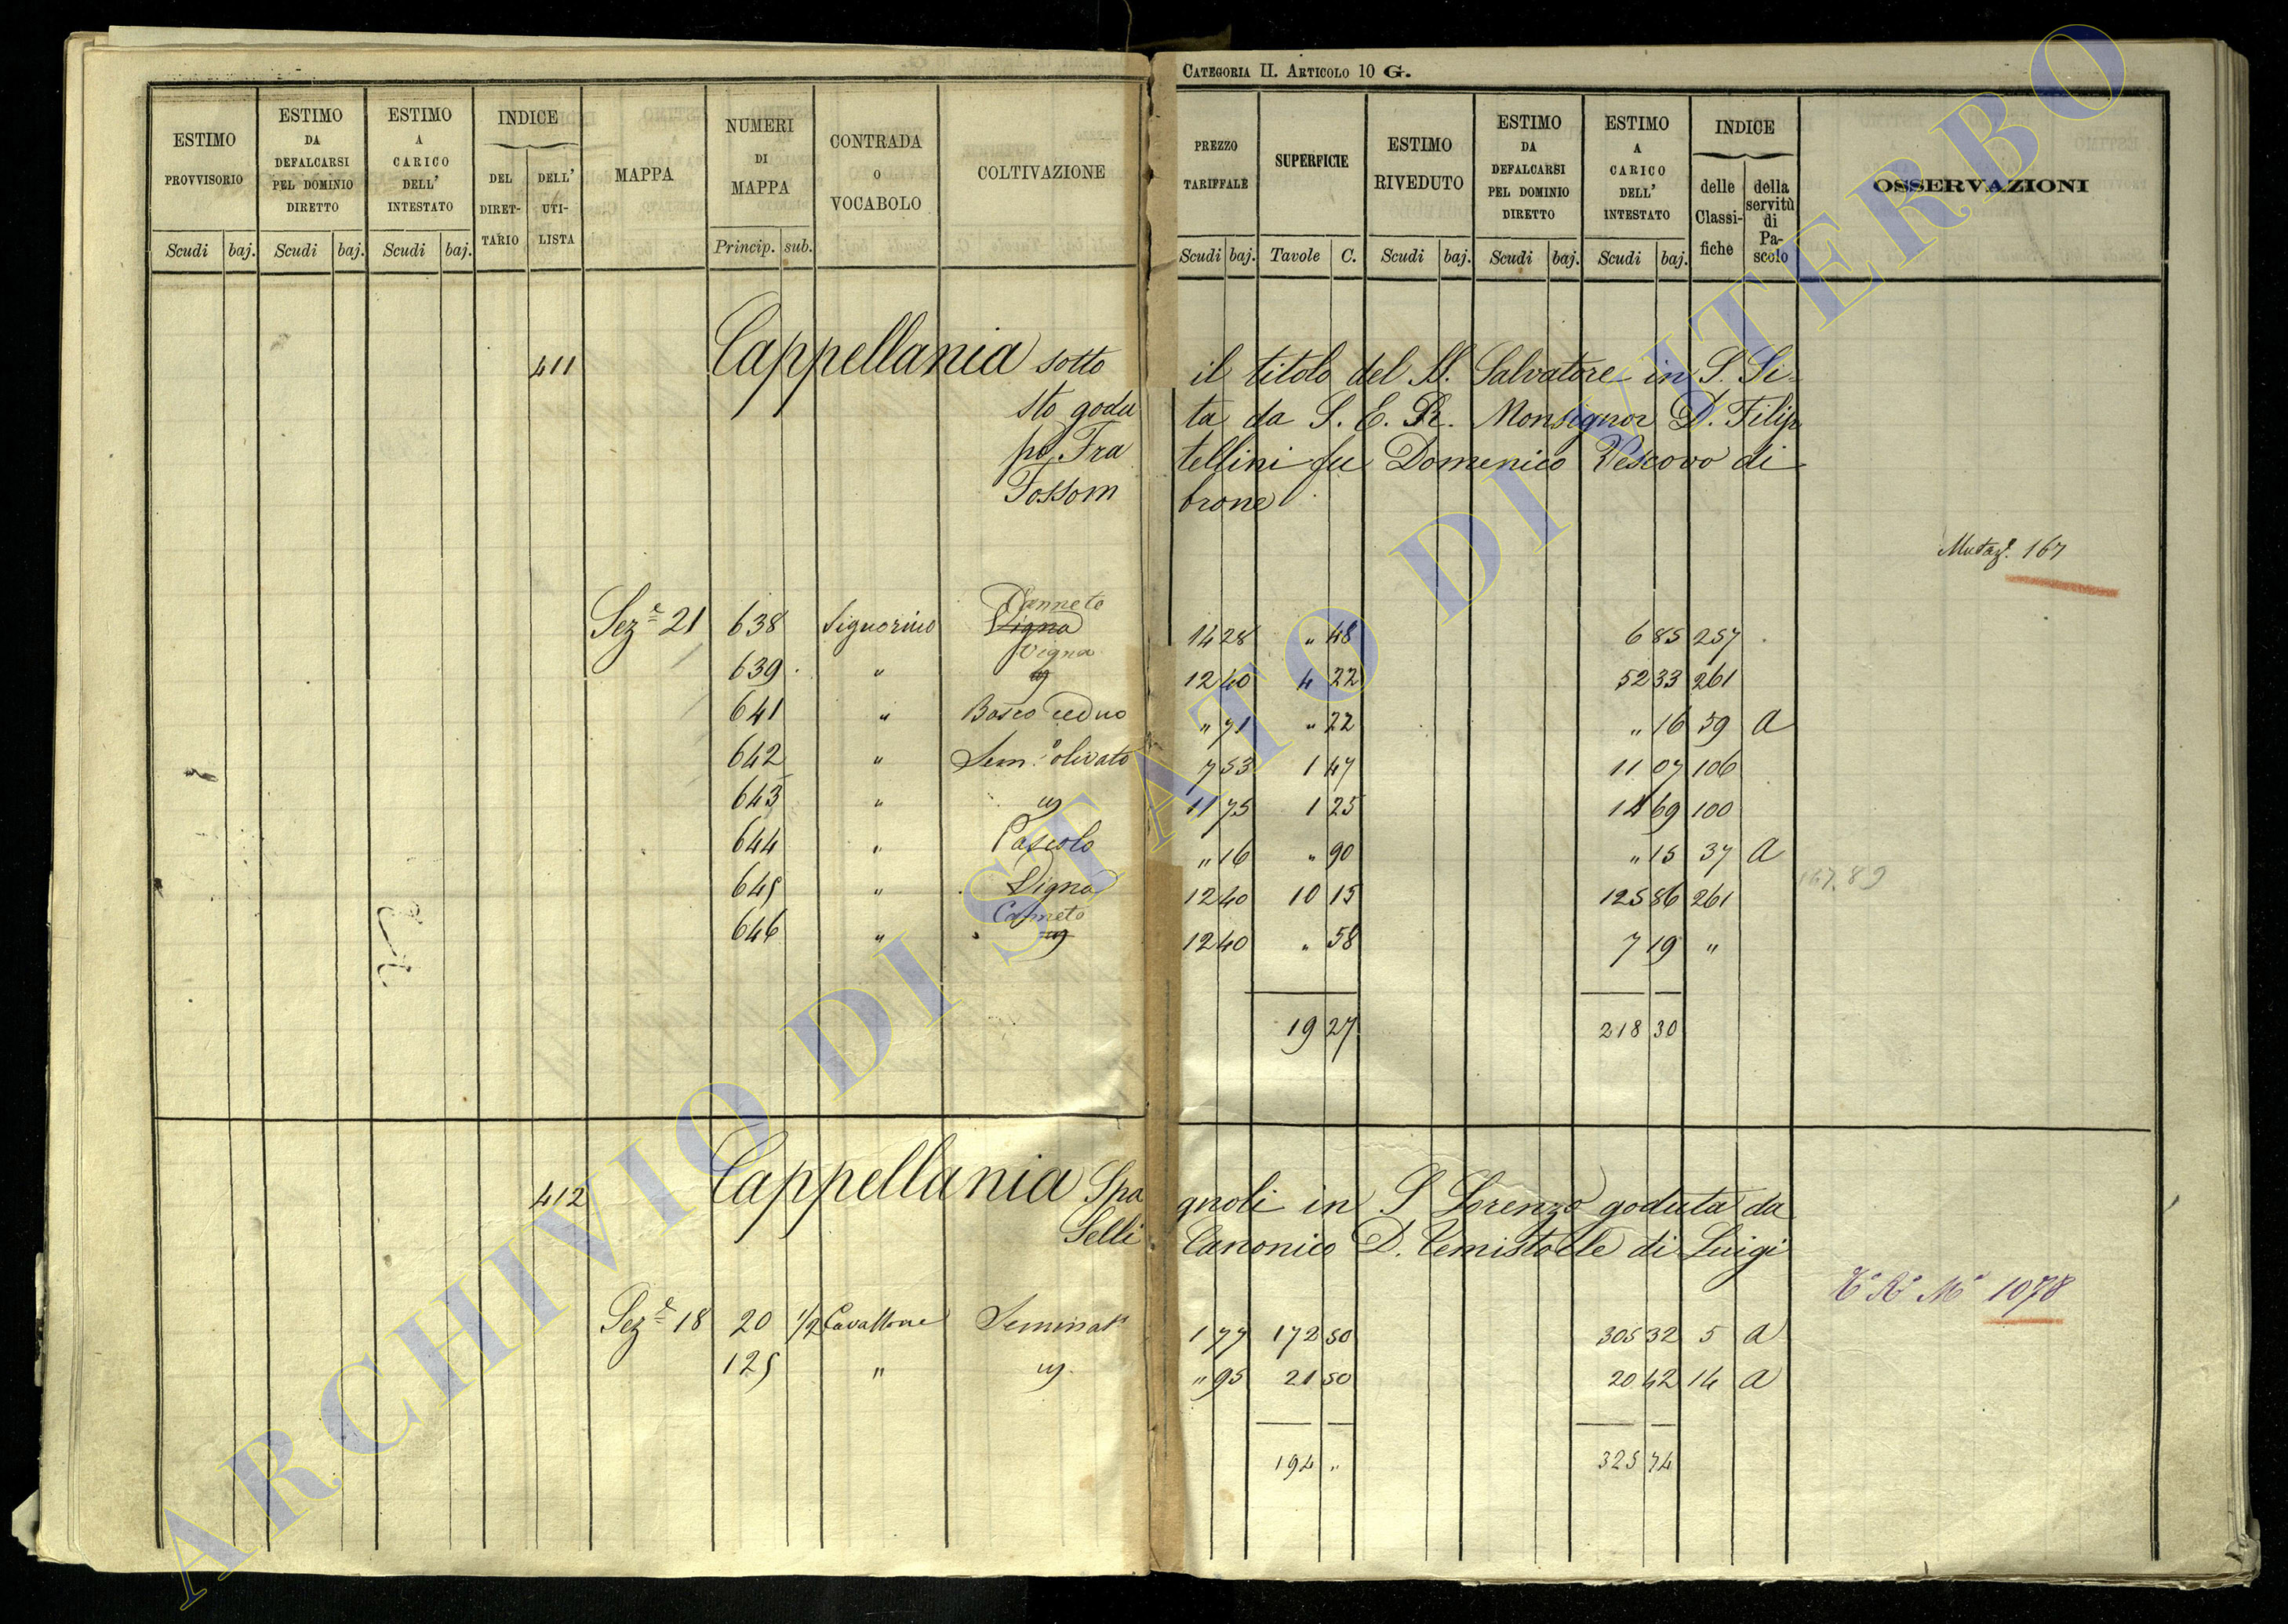 CATEGORIA II. ARTICOLO 10 G.
ESTIMO PROVVISORIO
ESTIMO DA DEFALCARSI PEL DOMINIO DIRETTO
ESTIMO A CARICO DELL' INTESTATO
INDICE
DEL DIRET- TARIO
DELL' UTI- LISTA
MAPPA
NUMERI DI MAPPA
CONTRADA O VOCABOLO
COLTIVAZIONE
PREZZO TARIFFALE
SUPERFICIE
ESTIMO RIVEDUTO
ESTIMO DA DEFALCARSI PEL DOMINIO DIRETTO
ESTIMO A CARICO DELL' INTESTATO
INDICE
delle Classi- fiche
della servitù di Pa- scolo
OSSERVAZIONI
Scudi baj. Scudi baj. Scudi baj. Princip. sub. Scudi baj. Tavole C. Scudi baj. Scudi baj. Scudi baj.
411 Cappellania sotto il titolo del SS. Salvatore in S. Si-
sto godu ta da S. E. R. Monsignor D. Filip
po Fra tellini fu Domenico Vescovo di
Fossom brone
Mutaz. 167
Canneto
Sez.e 21 638 Signorino Vigna 14 28 " 48 6 85 257
Vigna
639 " " 12 40 4 22 52 33 261
641 " Bosco ceduo " 71 " 22 " 16 59 a
642 " Sem.o olivato 7 53 1 47 11 07 106
643 " " 11 75 1 25 14 69 100
644 " Pascolo " 16 " 90 " 15 37 a
645 " Vigna 12 40 10 15 125 86 261
167.89
Canneto
646 " " 12 40 " 58 7 19 "
19 27 218 30
412 Cappellania Spa gnoli in S Lorenzo goduta da
Selli Canonico D. Temistocle di Luigi
1078
Sez.e 18 20 1/2 Cavallone Seminat.o 1 77 172 50 305 32 5 a
125 " " " 95 21 50 20 42 14 a
194 " 325 74
ARCHIVIO DI STATO DI VITERBO